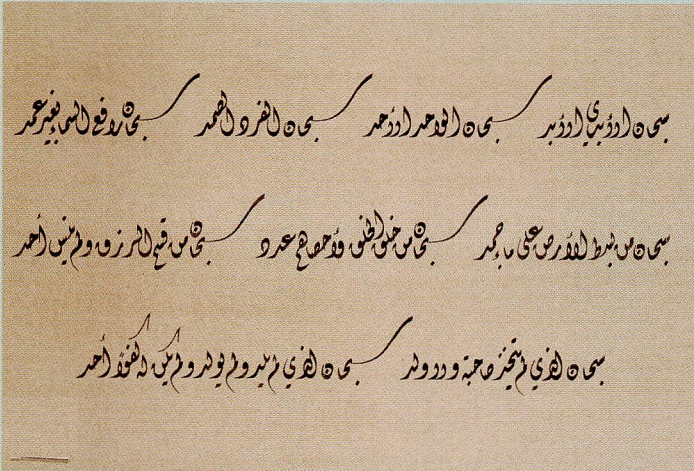 سبحان الأبدي الأبد سبحان الواحد الأحد سبحان الفرد الصمد سبحان رافع السماء بغير عمد
سبحان من بسط الأرض على ماء جمد سبحان من خلق الخلق وأحصاهم عدد سبحان من قسم الرزق ولم ينس أحد
سبحان الذي لم يتخذ صاحبة ولا ولد سبحان الذي لم يلد ولم يولد ولم يكن له كفوًا أحد